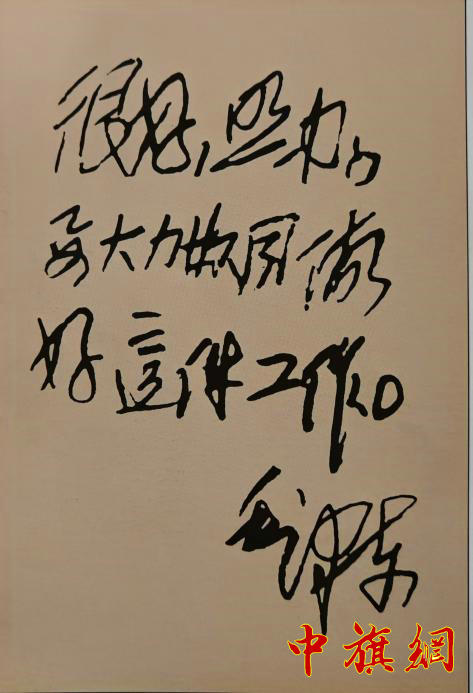 很好,照办。
要大力协同做
好這件工作。
毛泽东
中旗網